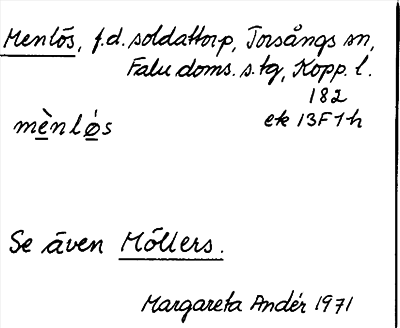 Menlös, f.d. soldattorp, Torsångs sn,
Falu doms. s. tg, Kopp. l.
182
mènløs ek 13F1h
Se även Möllers.
Margareta Andér 1971